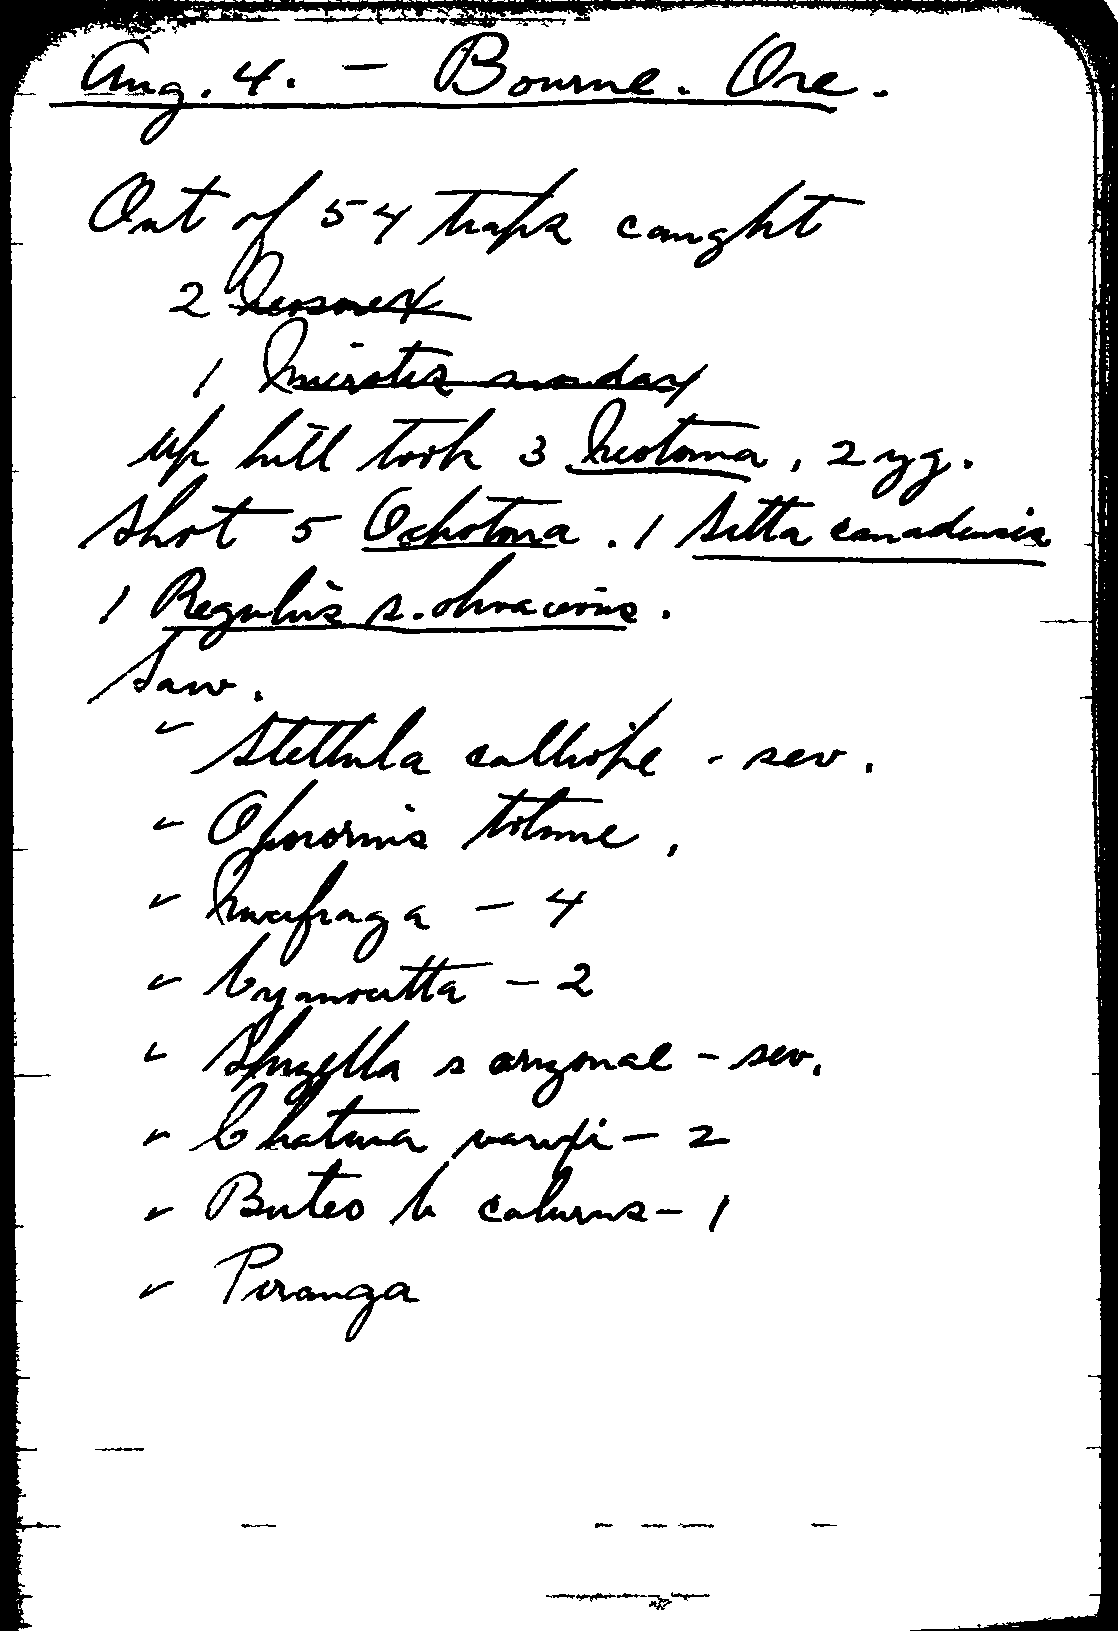 Aug. 4. - Bourne. Ore.
Out of 54 traps caught
2 Neosorex
1 Microtus mordax
up hill took 3 Neotoma, 2 yg.
Shot 5 Ochotona. 1 Sitta canadensis
1 Regulus s. olivaceus.
Saw.
✓ Stellula calliope - sev.
✓ Oporornis tolmiei,
✓ Nucifraga - 4
✓ Cyanocitta - 2
✓ Spizella s arizonae - sev.
✓ Chaetura vauxi - 2
✓ Buteo b calurus - 1
✓ Piranga